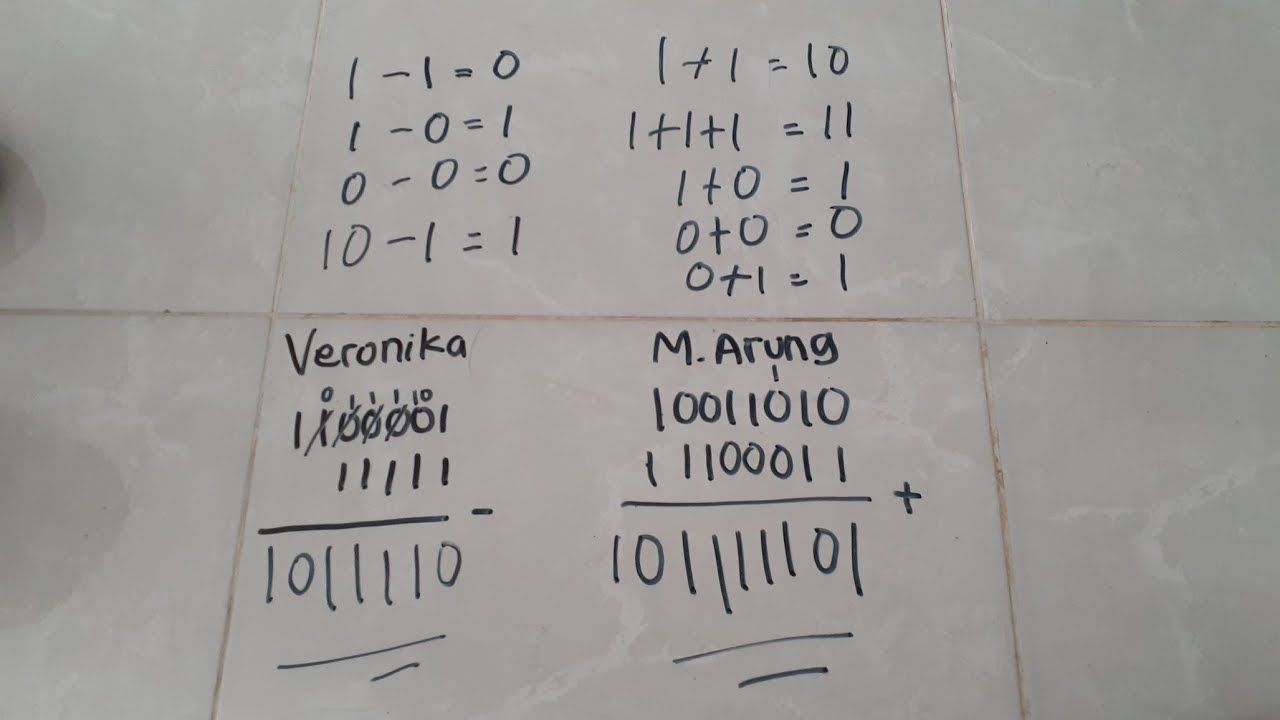 1 - 1 = 0
1 - 0 = 1
0 - 0 = 0
10 - 1 = 1
1 + 1 = 10
1+1+1 = 11
1+0 = 1
0+0 = 0
0+1 = 1
Veronika
0 1 1 1 10
1100001
11111
-
1011110
M. Arung
1
10011010
11100011
+
101111101